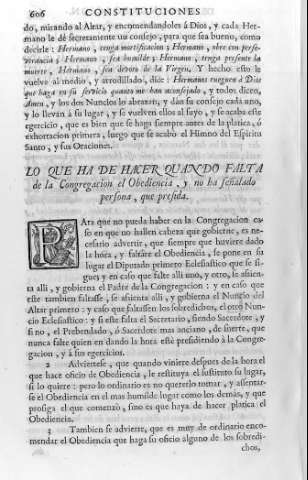 606 CONSTITUCIONES
do, mirando al Altar, y encomendandoles à Dios, y cada Her-
mano le dè secretamente un consejo, para que sea bueno, como
decirle: Hermano, tenga mortificacion; Hermano, obre con perse-
verancia; Hermano, sea humilde; Hermano, tenga presente la
muerte, Hermano, sea devoto de la Virgen. Y hecho esto le
vuelve al medio, y arrodillado, dice: Hermanos rueguen à Dios
que haga en su servicio quanto me han aconsejado, y todos dicen,
Amen, y los dos Nuncios lo abrazan, y dàn su consejo cada uno,
y lo llevan à su lugar, y se vuelven ellos al suyo, y se acaba este
exercicio, que es bien que se haga siempre antes de la platica, ò
exhortacion primera, luego que se acabò el Himno del Espiritu
Santo, y sus Oraciones.
LO QUE HA DE HACER QUANDO FALTA
de la Congregacion el Obediencia, y no ha señalado
persona, que presida.
PAra que no pueda haber en la Congregacion ca-
so en que no hallen cabeza que gobierne, es ne-
cesario advertir, que siempre que huviere dado
la hora, y faltàre el Obediencia, se pone en su
lugar el Diputado primero Eclesiastico que le si-
gue; y en caso que falte alli uno, y otro, se asien-
ta alli, y gobierna el Padre de la Congregacion: y en caso que
este tambien faltasse, se asienta alli, y gobierna el Nuncio del
Altar primero: y caso que faltassen los sobredichos, el otro Nun-
cio Eclesiastico: y si este falta el Secretario, siendo Sacerdote, y
si no, el Prebendado, ò Sacerdote mas anciano, de suerte, que
nunca falte quien en dando la hora estè presidiendo à la Congre-
gacion, y à sus exercicios.
2 Adviertese, que quando viniere despues de la hora el
que hace oficio de Obediencia, le restituya el sustituto su lugar,
si lo quiere: pero lo ordinario es no quererlo tomar, y assentar-
se el Obediencia en el mas humilde lugar como los demàs, y que
prosiga el que comenzò, sino es que haya de hacer platica el
Obediencia.
3 Tambien se advierte, que es muy de ordinario enco-
mendar el Obediencia que haga su oficio alguno de los sobredi-
chos,